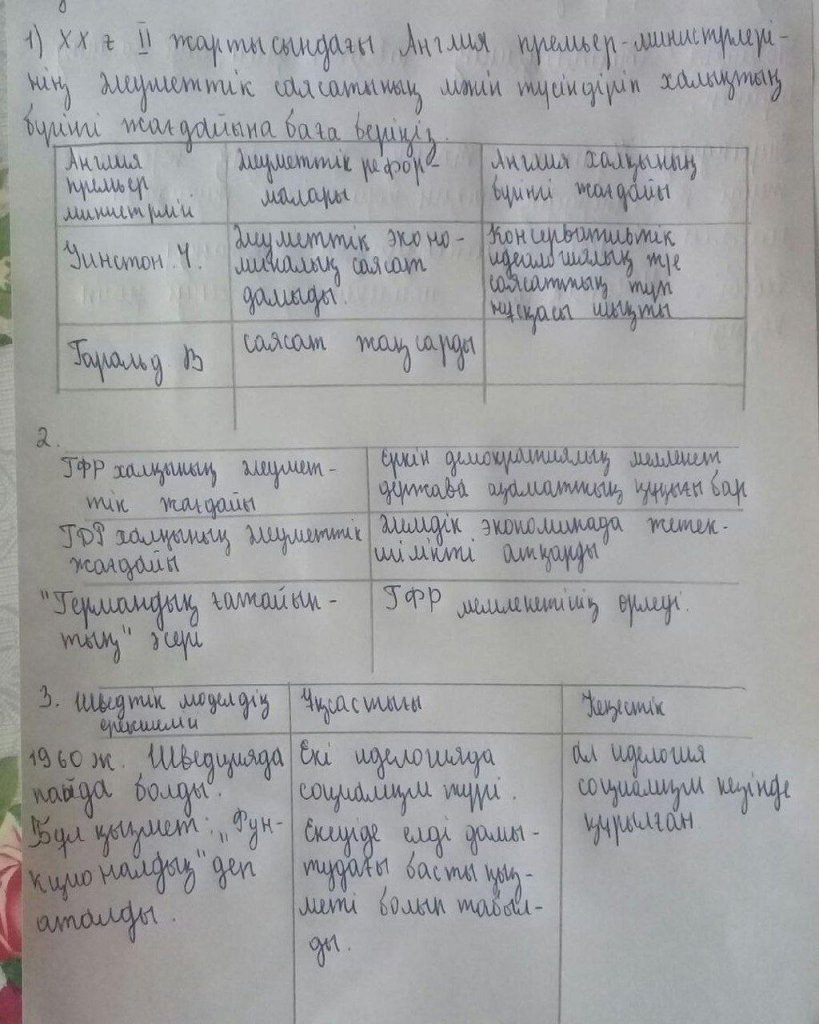 1) XX ғ II жартысындағы Англия премьер-министрлері-
нің әлеуметтік саясатының мәнін түсіндіріп халықтың
бүгінгі жағдайына баға беріңіз.
Англия
премьер
министрлігі
Әлеуметтік рефор-
малары
Англия халқының
бүгінгі жағдайы
Уинстон.Ч.
Әлеуметтік эконо-
микалық саясат
дамыды.
Консервативтік
идеалогиялық түе
саясаттың түп
нұсқасы шықты
Гаральд В
саясат жақсарды
2.
ГФР халқының әлеумет-
тік жағдайы
Еркін демократиялық мемлекет
держава азаматтық құқығы бар
ГДР халқының әлеуметтік
жағдайы
Әлемдік экономикада жетек-
шілікті атқарды
"Германдық ғажайып-
тың" әсері
ГФР мемлекетінің өрлеуі.
3. Шведтік моделдің
ерекшелі
Ұқсастығы
Кеңестік
1960ж. Швецияда
пайда болды.
Бұл қызмет: „Фун-
кционалдық" деп
аталды.
Екі иделогияда
социализм түрі.
Екеуіде елді дамы-
тудағы басты қыз-
меті болып табыл-
ды.
ал иделогия
социализм кезінде
құрылған